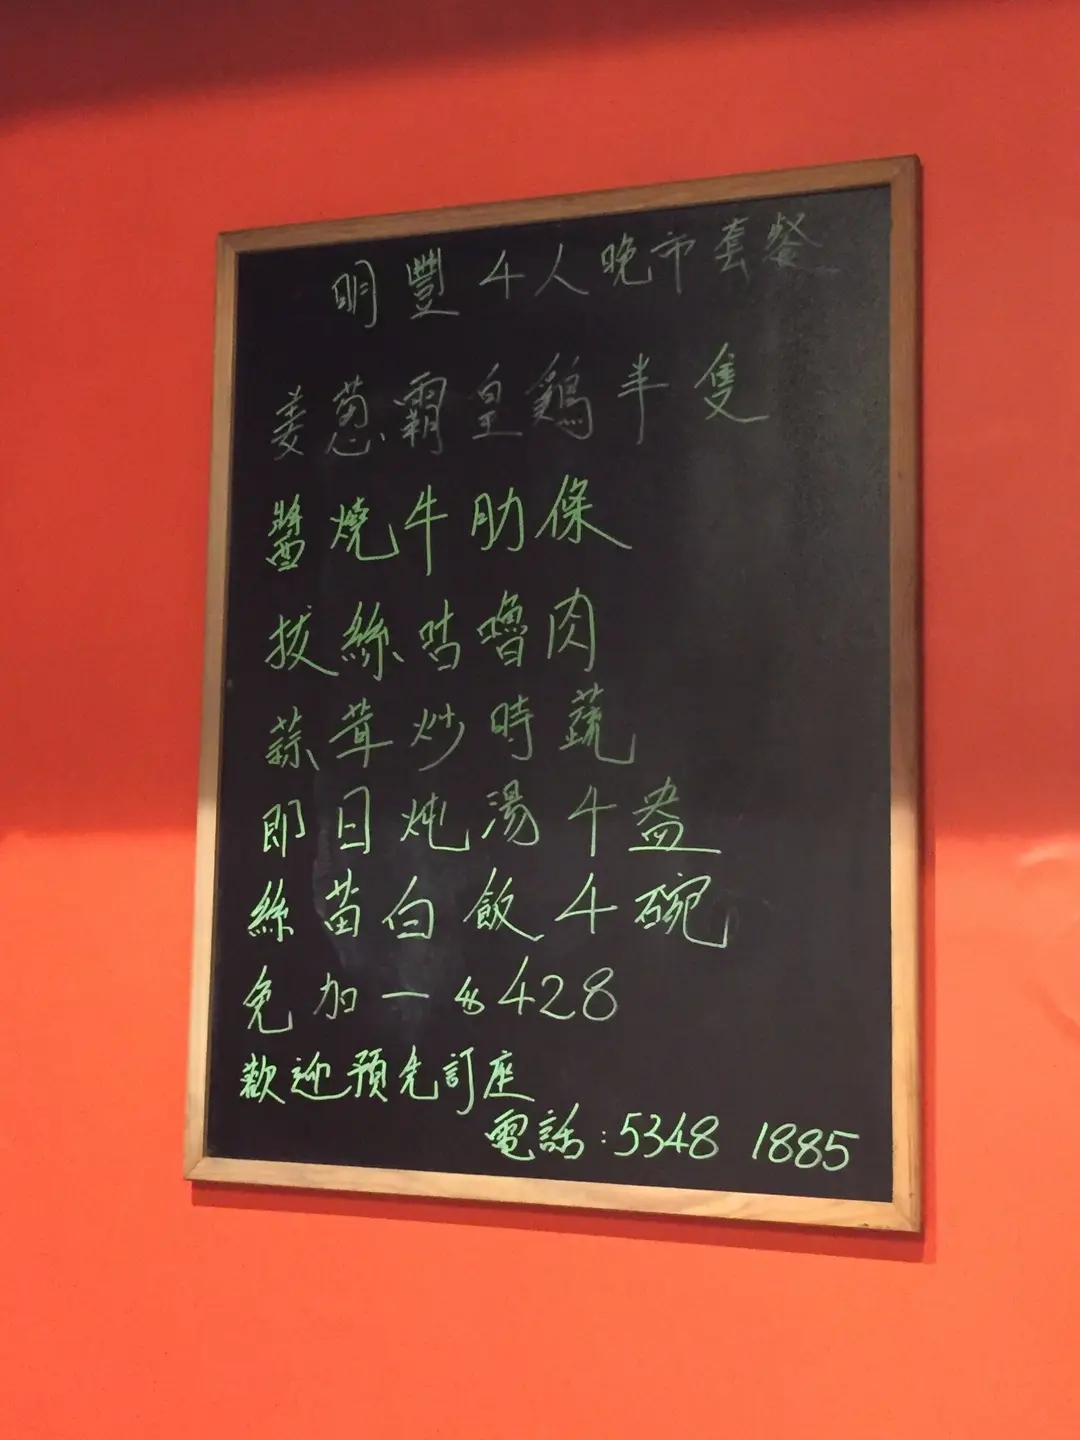 明豐4人晚市套餐
姜葱霸皇鷄半隻
醬燒牛肋條
拔絲咕嚕肉
蒜茸炒時蔬
即日炖湯4盎
絲苗白飯4碗
免加一 $428
歡迎預先訂座
電話:5348 1885